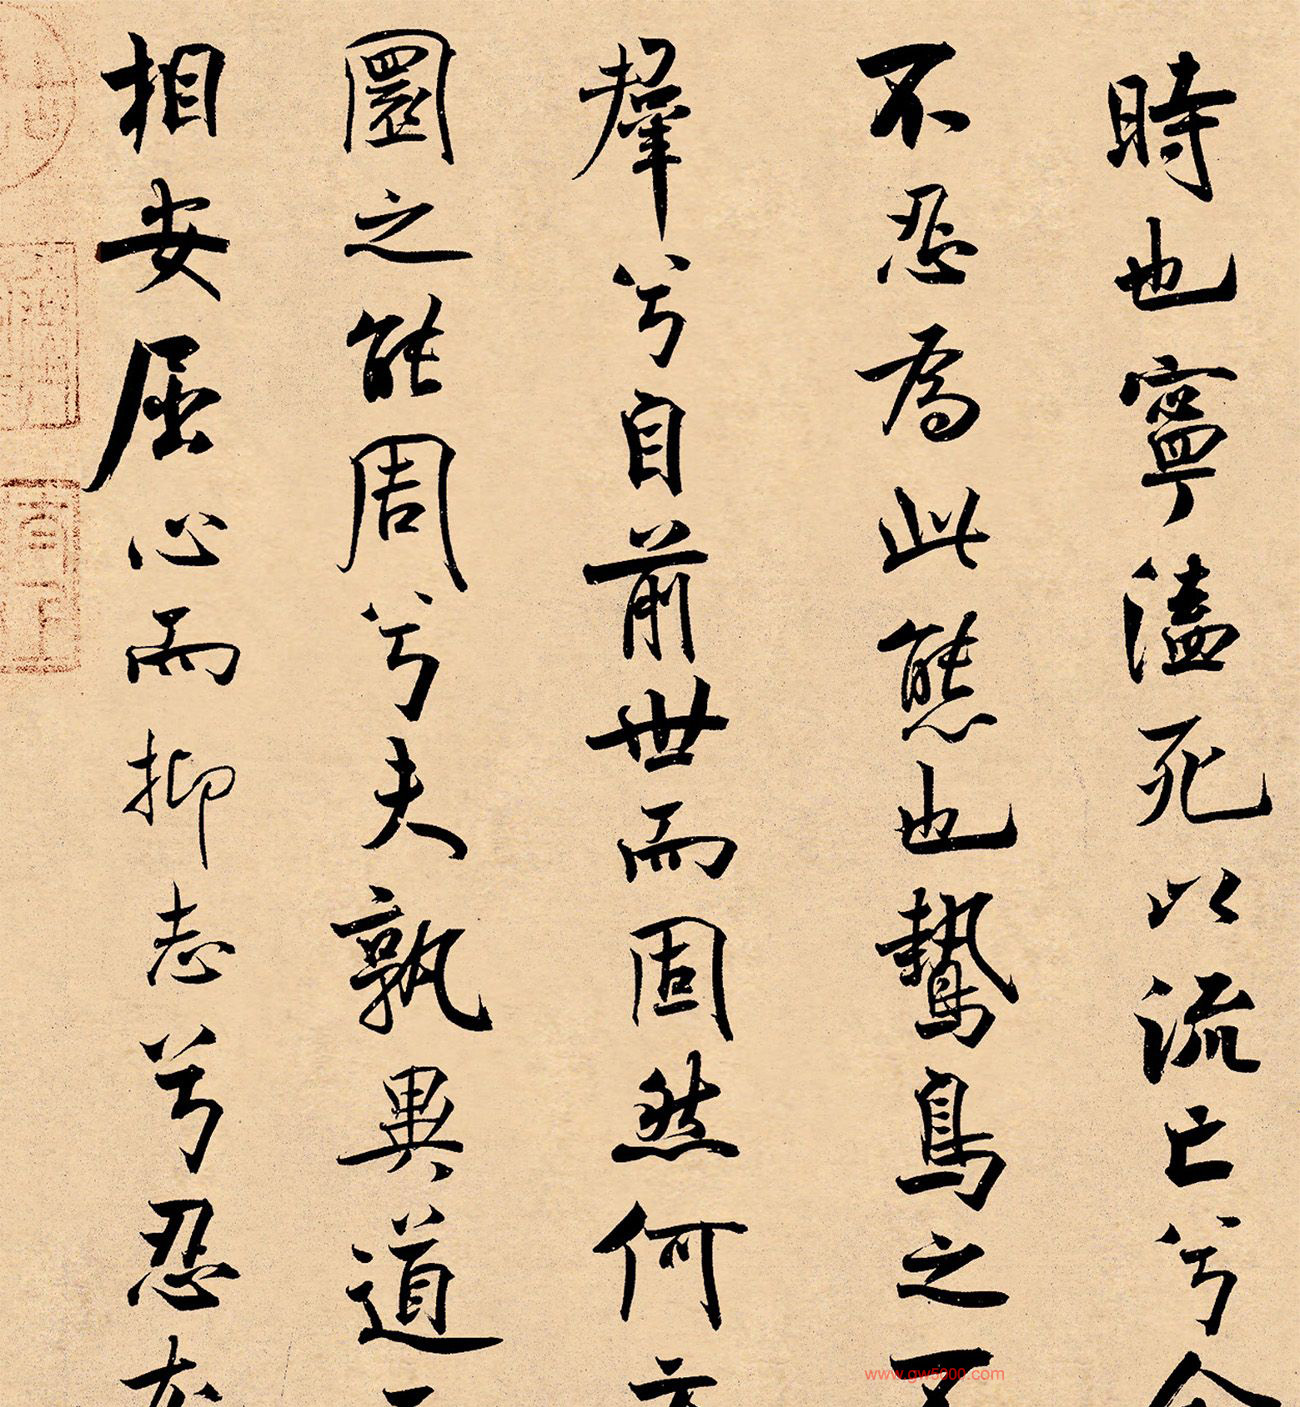 時也寧溘死以流亡兮余
不忍為此態也鷙鳥之不
羣兮自前世而固然何方
圜之能周兮夫孰異道
相安屈心而抑志兮忍
www.gw5000.com